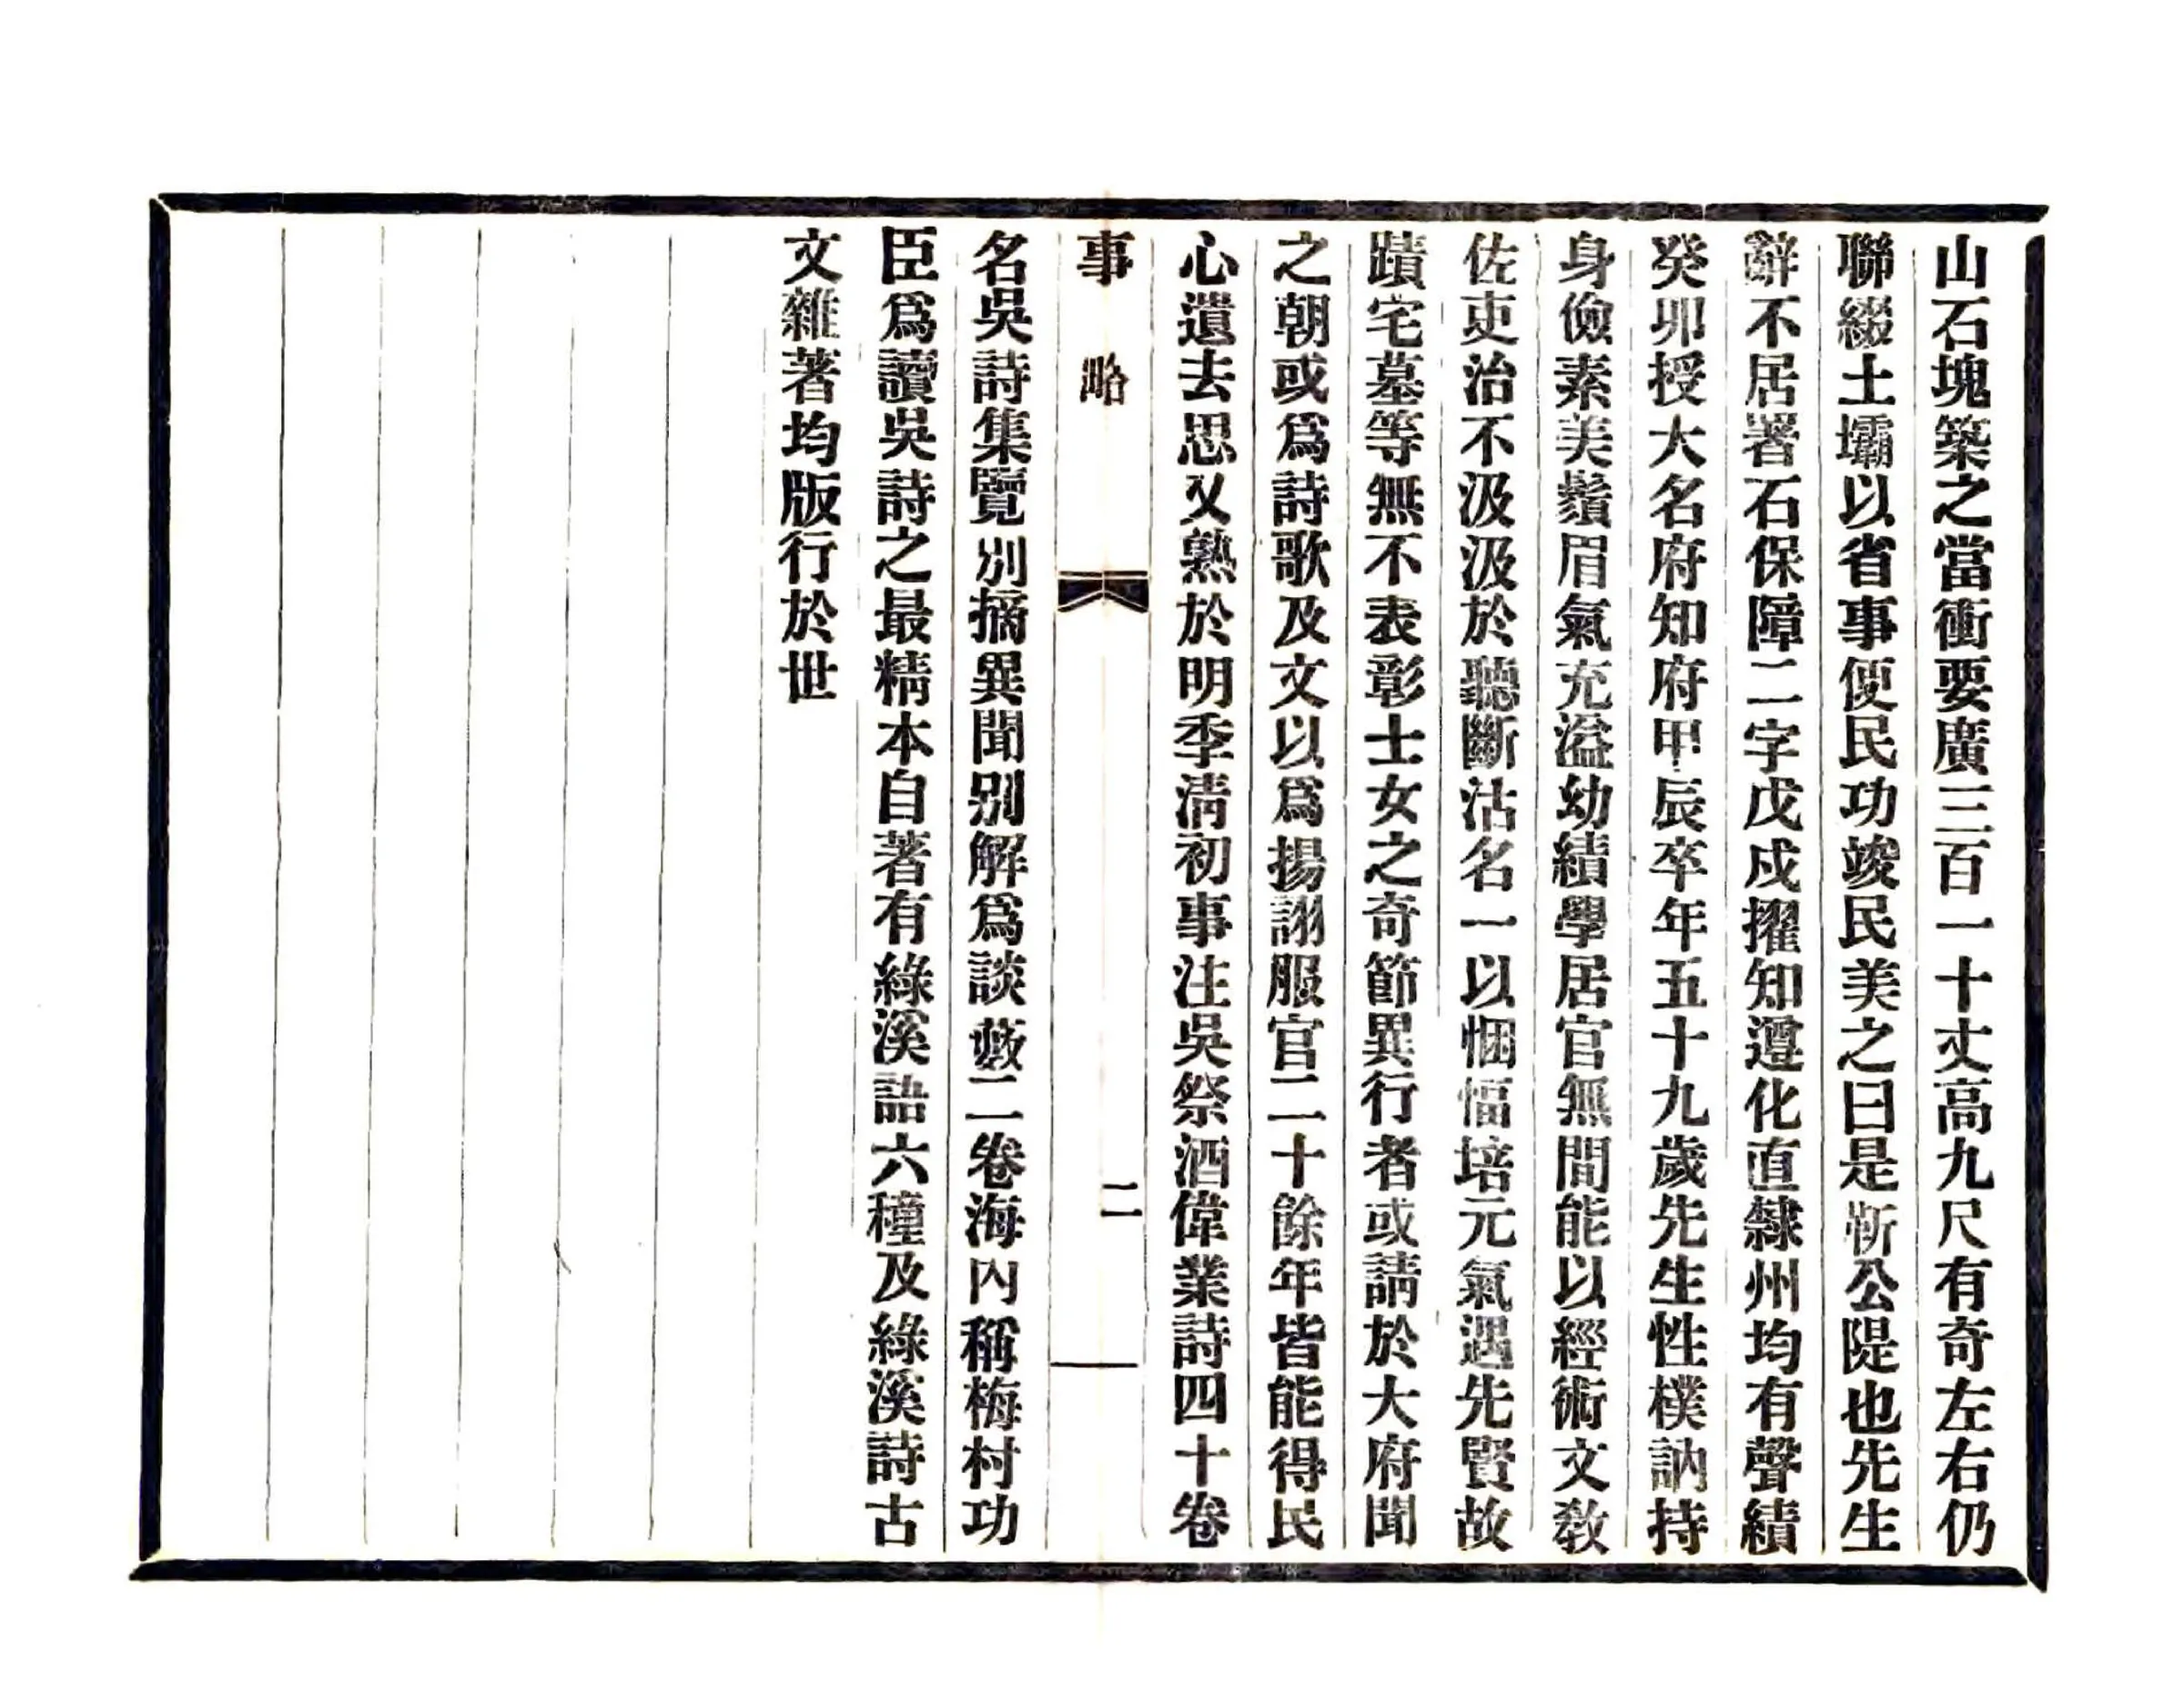 山石塊築之當衝要廣三百一十丈高九尺有奇左右仍
聯綴土壩以省事便民功竣民美之曰是靳公隄也先生
辭不居署石保障二字戊戌擢知遵化直隸州均有聲績
癸卯授大名府知府甲辰卒年五十九歲先生性樸訥持
身儉素美鬚眉氣充溢幼績學居官無間能以經術文敎
佐吏治不汲汲於聽斷沽名一以悃愊培元氣遇先賢故
蹟宅墓等無不表彰士女之奇節異行者或請於大府聞
之朝或爲詩歌及文以爲揚詡服官二十餘年皆能得民
心遺去思又熟於明季淸初事注吳祭酒偉業詩四十卷
事略
二
名吳詩集覽別摘異聞別解爲談藪二卷海內稱梅村功
臣爲讀吳詩之最精本自著有綠溪語六種及綠溪詩古
文雜著均版行於世